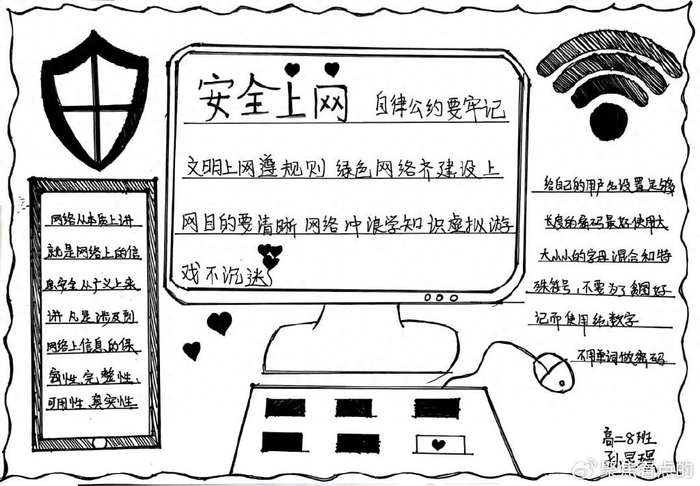 安全上网 自律公约要牢记
文明上网遵规则 绿色网络齐建设上
网目的要清晰 网络冲浪学知识虚拟游
戏不沉迷
网络从本质上讲
就是网络上的信
息安全从广义上来
讲 凡是涉及到
网络上信息的保
密性、完整性、
可用性、真实性
给自己的用户名设置足够
长度的密码最好使用大
大小小的字母混合和特
殊符号,不要为了贪图好
记而使用纯数字
不用单词做密码
高二8班
@聚焦看点的